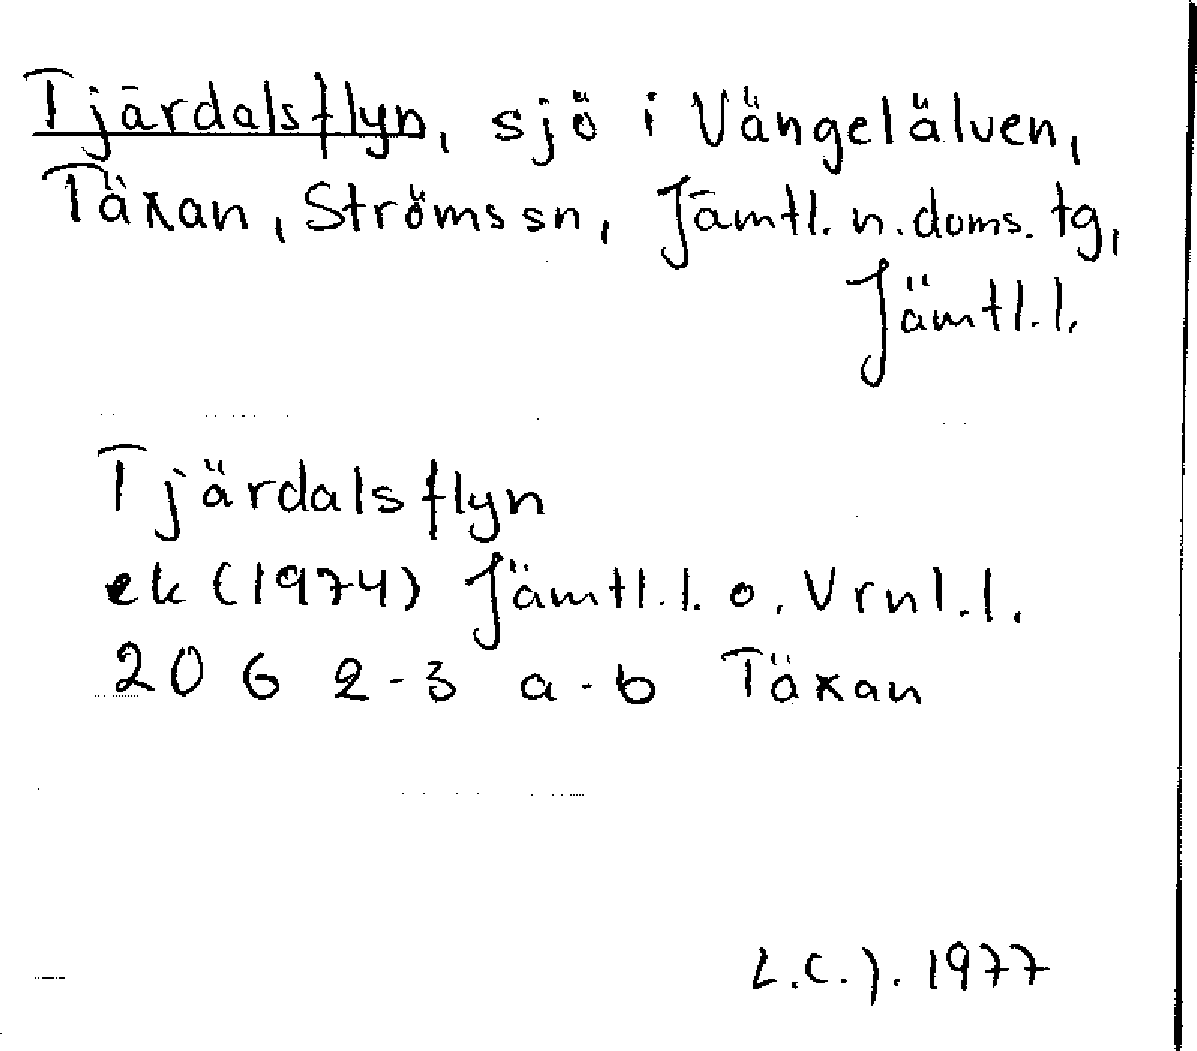 Tjärdalsflyn, sjö i Vängelälven,
Täxan, Ströms sn, Jämtl. n. doms. tg,
Jämtl. l.
Tjärdalsflyn
ek (1974) Jämtl. l. o. Vrnl. l.
20 6 2-3 a-b Täxan
L.C.J. 1977